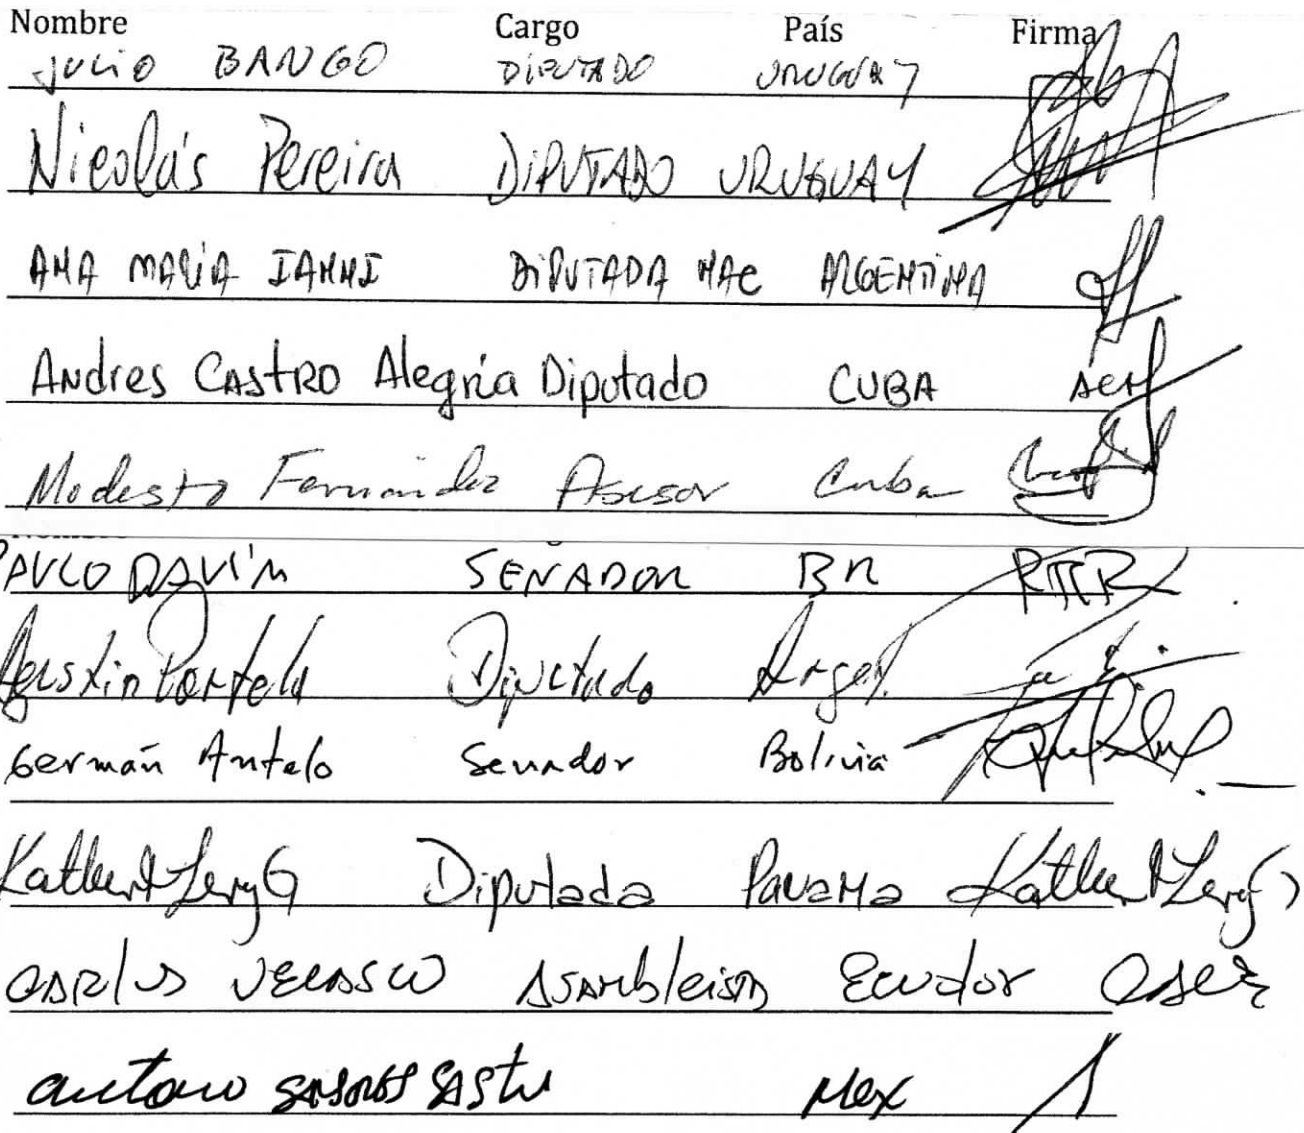 Nombre Cargo País Firma
JULIO BANGO DIPUTADO URUGUAY
Nicolás Pereira DIPUTADO URUGUAY
ANA MARÍA IANNI DIPUTADA NAC ARGENTINA
Andres CASTRO Alegría Diputado CUBA
Modesto Fernández Asesor Cuba
PAULO DAVIM SENADOR BR
Agustin Portela Diputado Argent.
Germán Antelo Senador Bolivia
Diputada Panama
CARLOS VELASCO ASAMbleista Ecuador
Mex